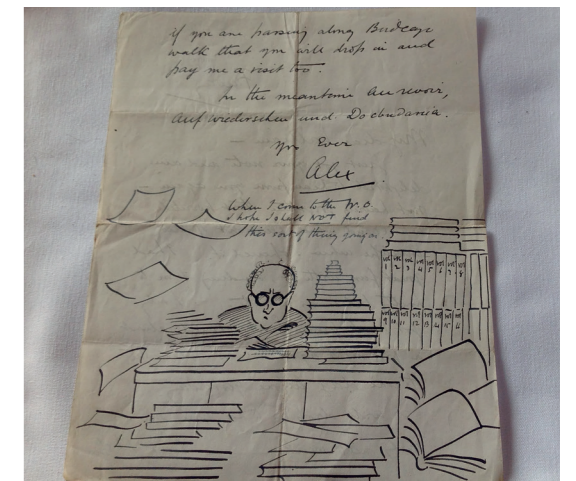 if you are passing along Birdcage
walk that you will drop in and
pay me a visit too.
In the meantime Au revoir,
Auf wiedersehen und Do cbudania.
Yrs Ever
Alex
When I come to the W.O.
I hope I shall NOT find
this sort of thing going on
vol 1 vol 2 vol 3 vol 4 vol 5 vol 6 vol 7 vol 8
vol 9 vol 10 vol 11 vol 12 vol 13 vol 14 vol 15 vol 16